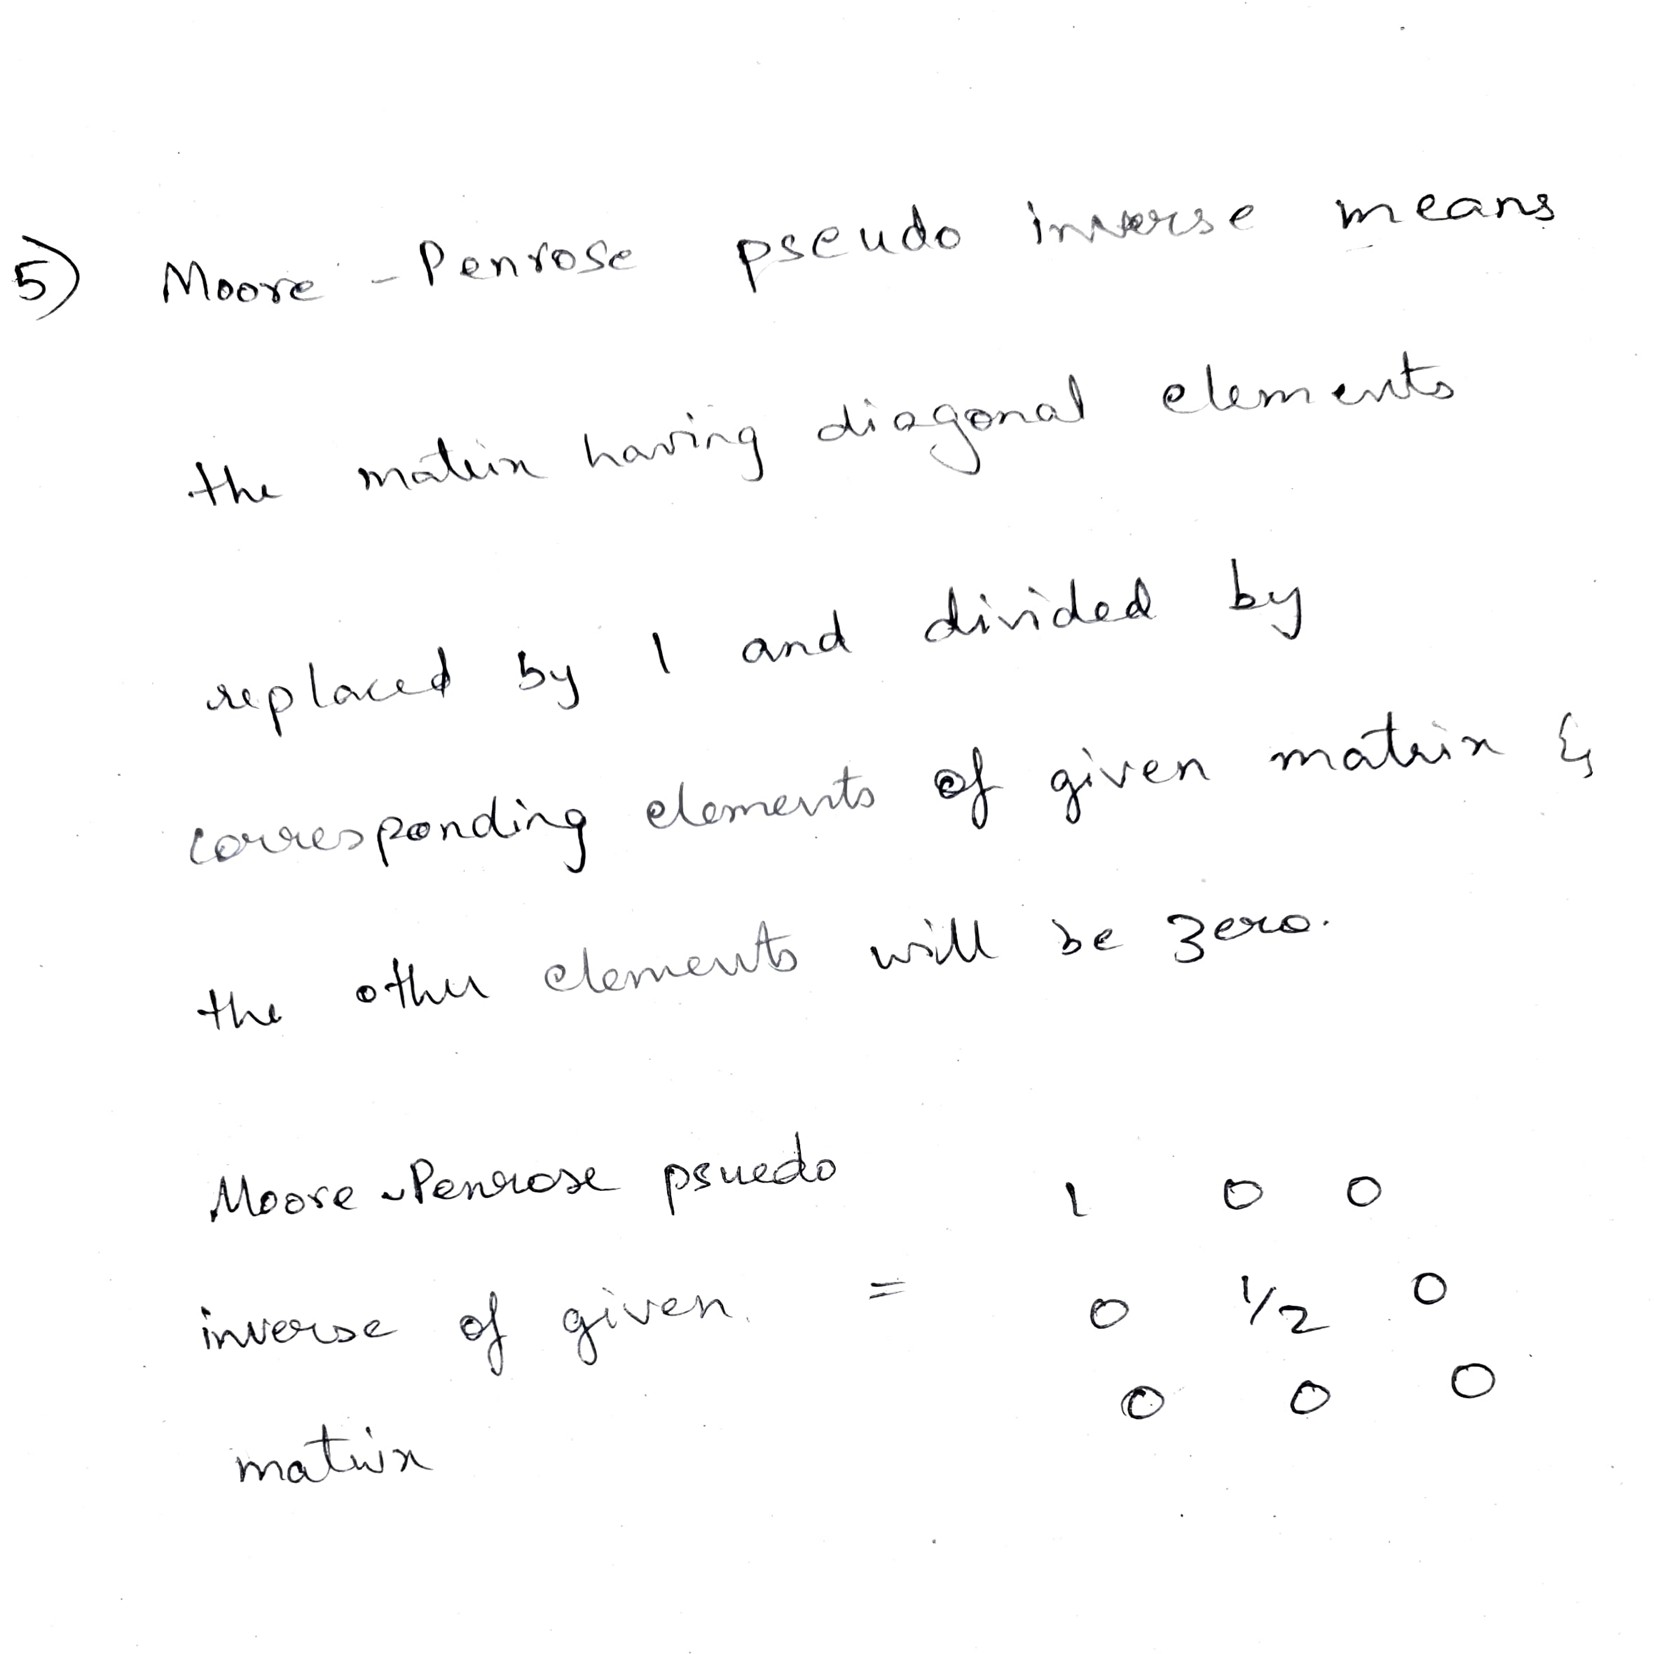 5) Moore - Penrose pseudo inverse means
the matrix having diagonal elements
replaced by 1 and divided by
corresponding elements of given matrix &
the other elements will be zero.
Moore - Penrose psuedo
inverse of given
matrix
=
1 0 0
0 1/2 0
0 0 0